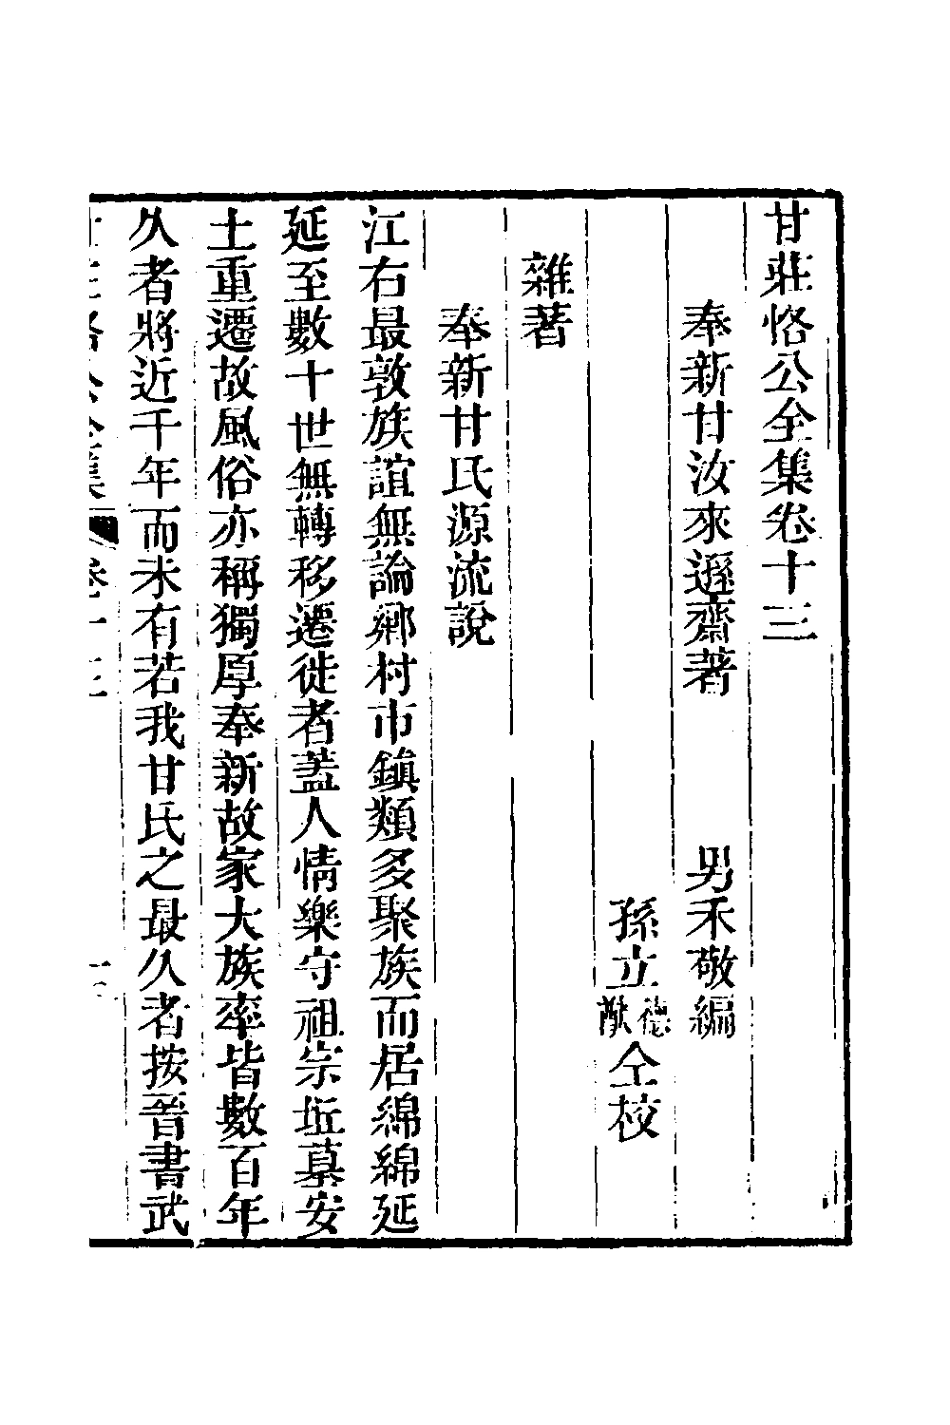 甘莊恪公全集卷十三
奉新甘汝來遜齋著　男禾敬編
孫立德猷仝校
雜著
奉新甘氏源流說
江右最敦族誼無論鄉村市鎮類多聚族而居綿綿延
延至數十世無轉移遷徙者蓋人情樂守祖宗坵墓安
土重遷故風俗亦稱獨厚奉新故家大族率皆數百年
久者將近千年而未有若我甘氏之最久者按晉書武